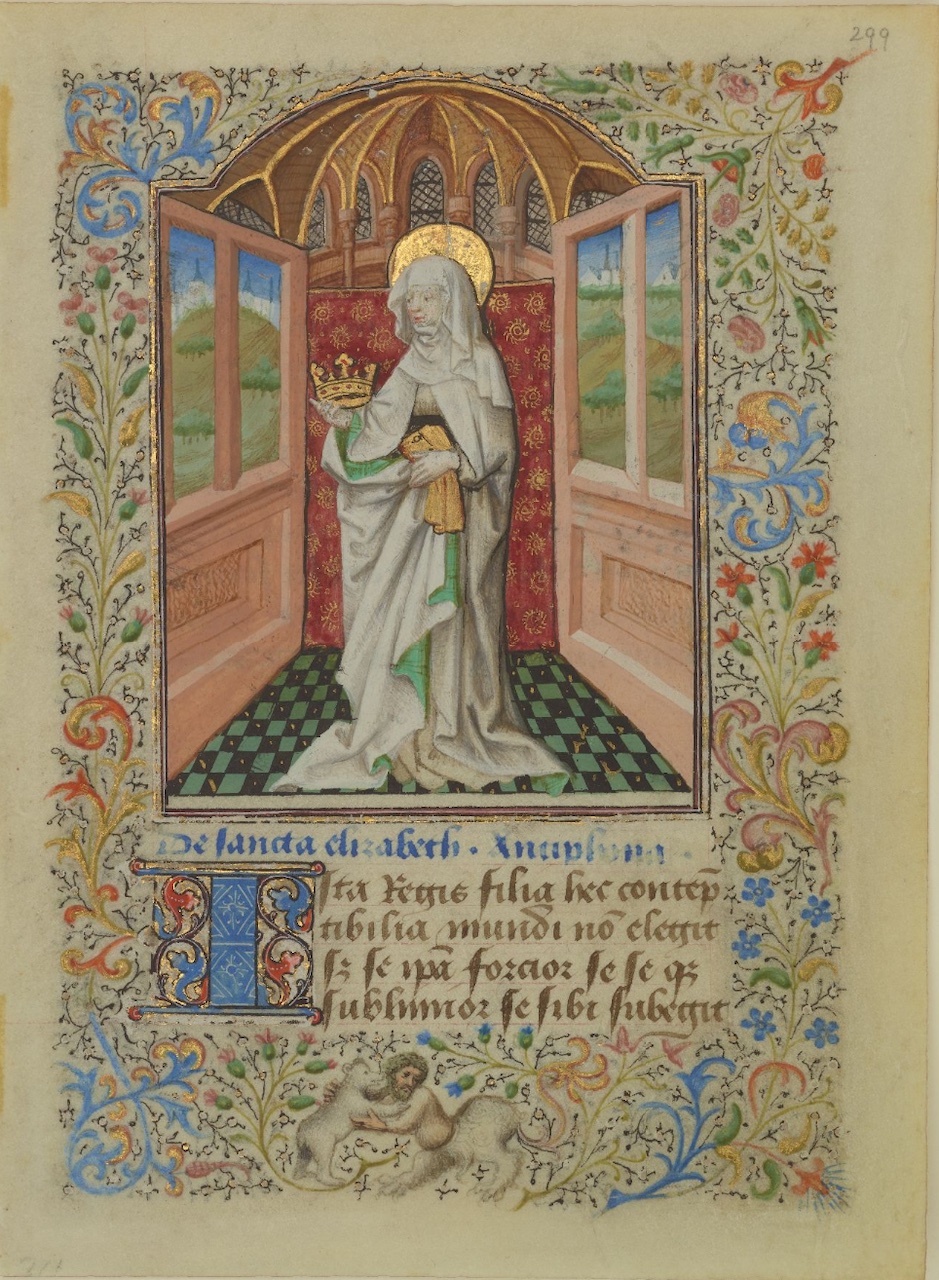 299
De sancta elizabeth. Antiphona.
Ista Regis filia hec contēp
tibilia mundi nō elegit
sȝ se ipā forcior se se qȝ
sublimior se sibi subegit